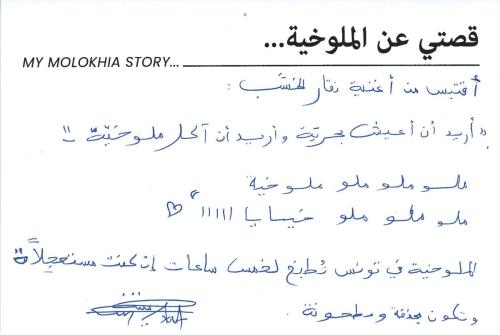 قصتي عن الملوخية...
MY MOLOKHIA STORY...
أقتبس من أغنية نقار الخشب :
"أريد أن أعيش بحريّة وأريد أن آكل ملوخيّة"
ملو ملو ملو ملوخية
ملو ملو ملو خيايا ااااا
الملوخية في تونس تُطبخ لخمس ساعات إن كنت مستعجلاً
وتكون مجففة ومطحونة.